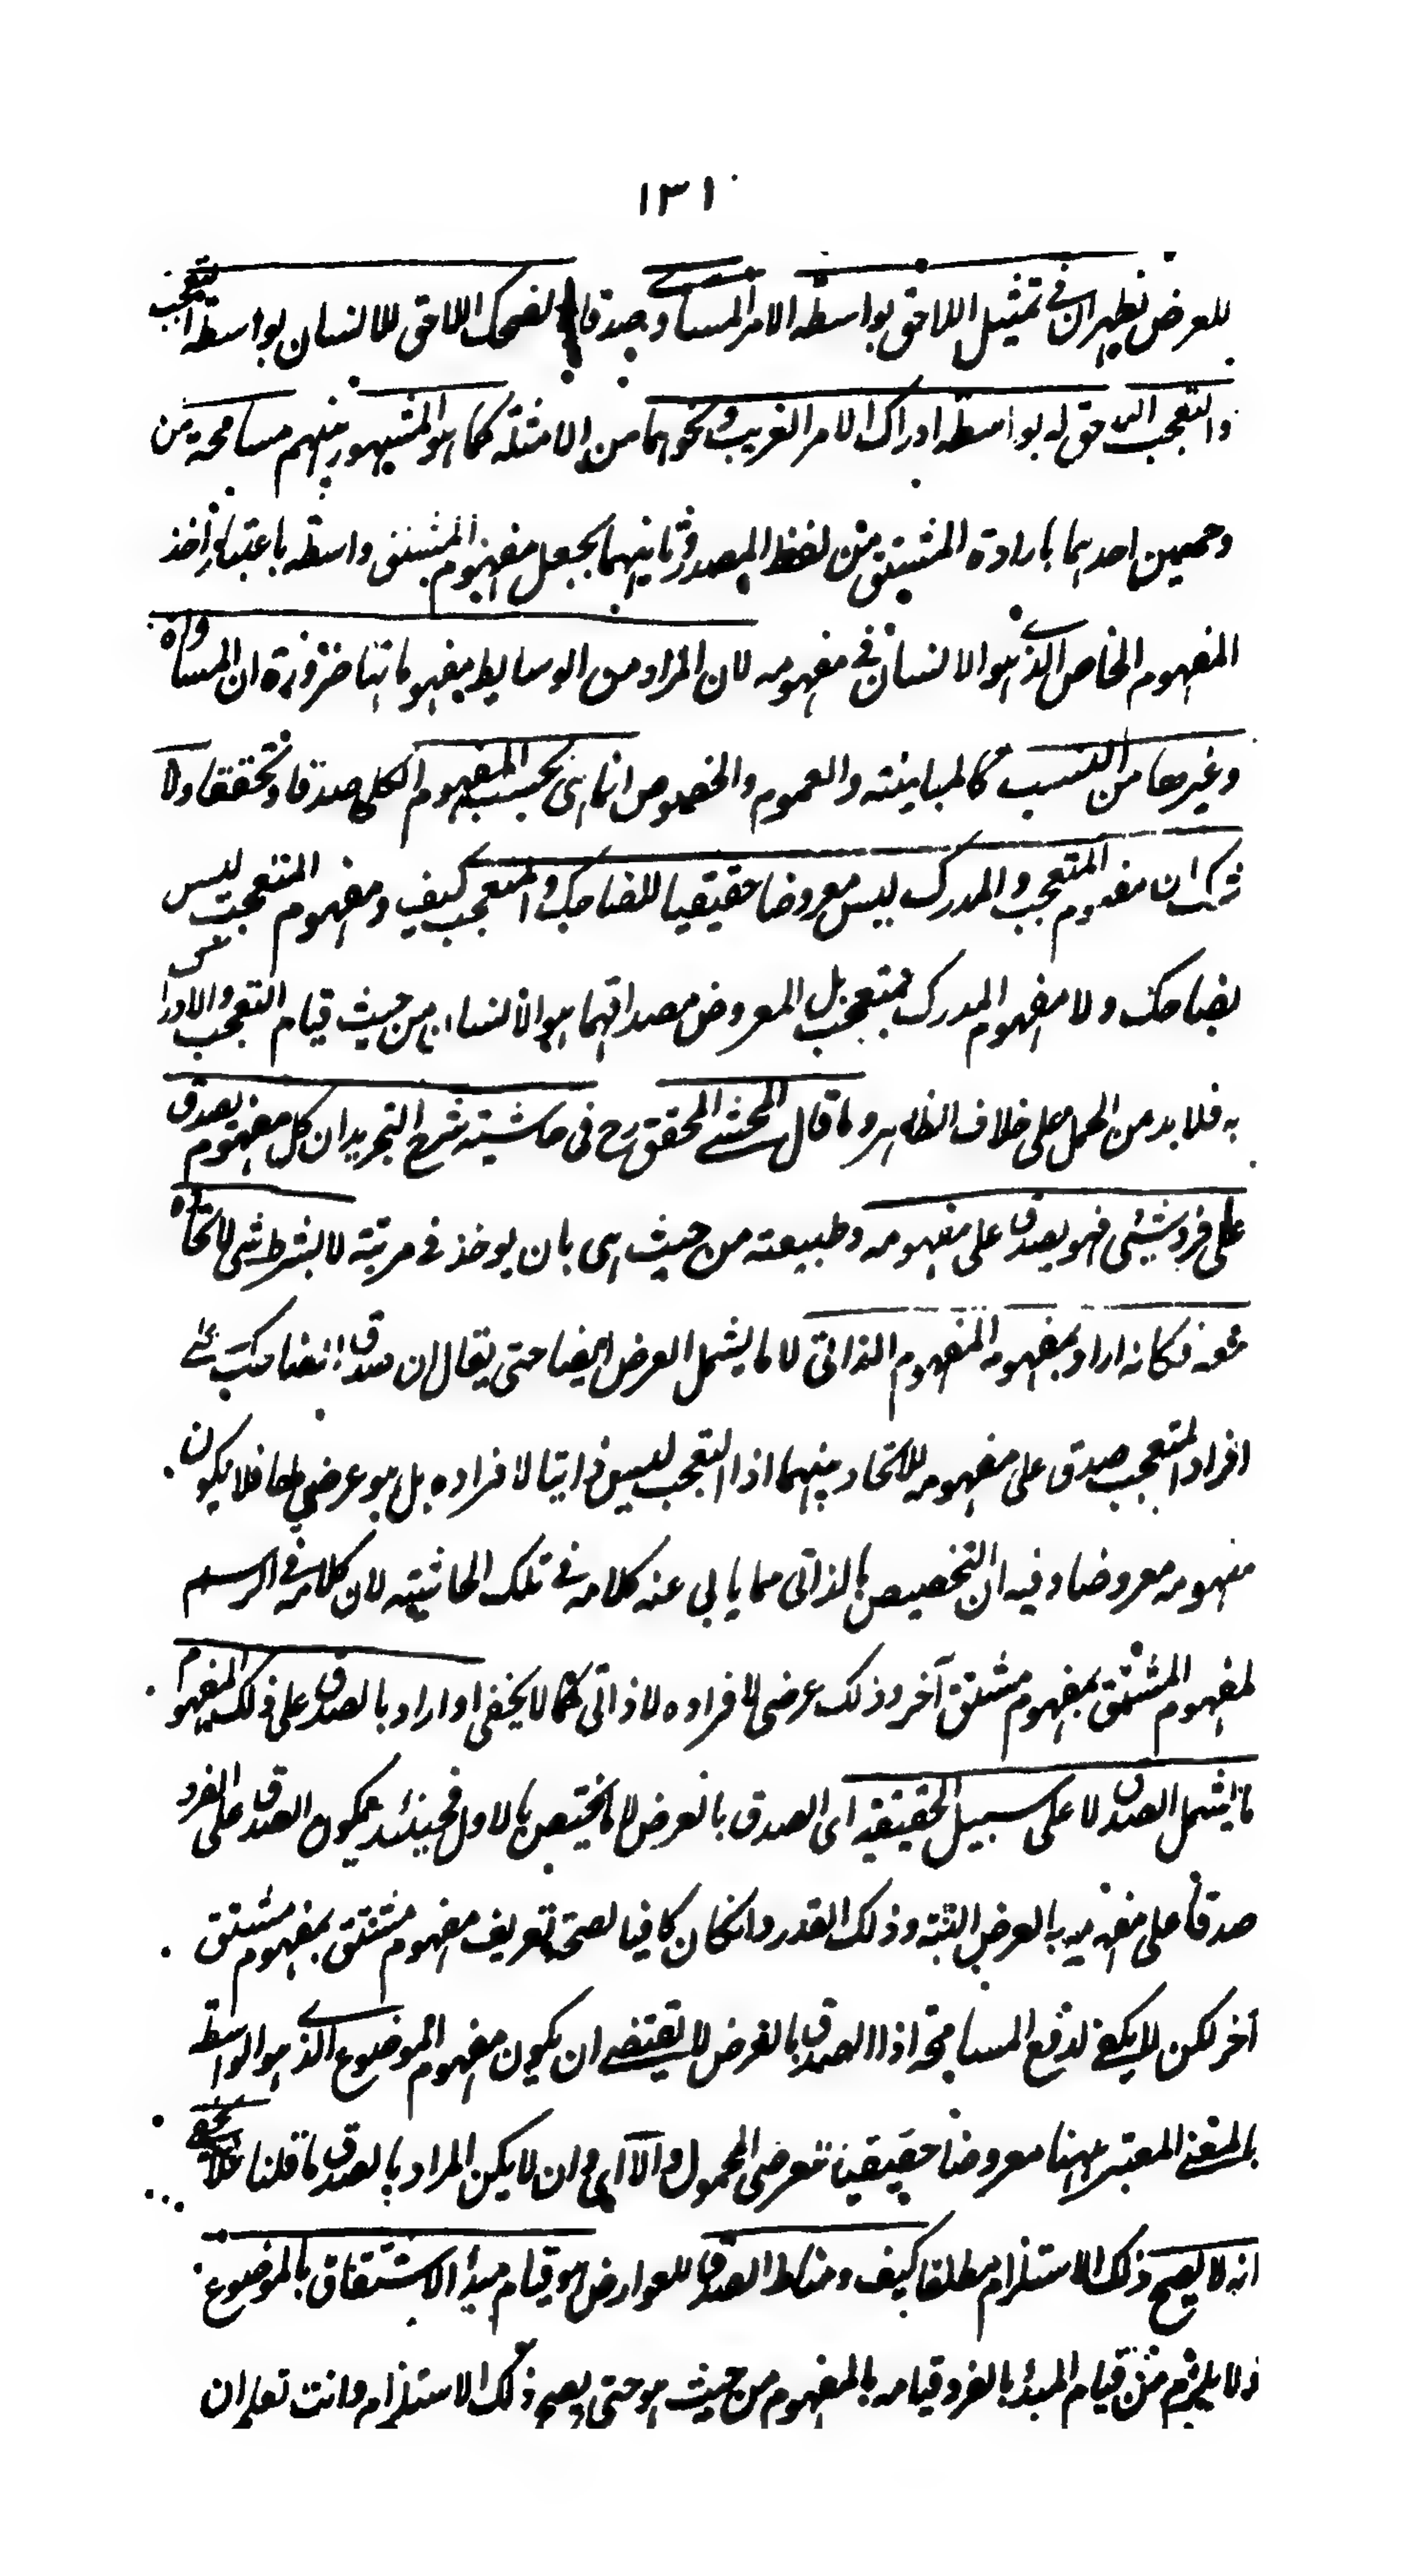 ١٣١
للعرض نظيران في تمثيل اللاحق بواسطة الامر المساوي صدقا الضحك اللاحق للانسان بواسطة التعجب
والتعجب اللاحق له بواسطة ادراك الامر الغريب ونحوهما من الامثلة كما هو المشهور بينهم مسامحة من
وجهين احدهما بارادة المشتق من لفظ المصدر وثانيهما بجعل مفهوم المشتق واسطة باعتبار اخذ
المفهوم الخاص الذي هو الانسان في مفهومه لان المراد من الوسايط مفهوماتها ضرورة ان المساواة
وغيرها من النسب كالمباينة والعموم والخصوص انما هي بحسب المفهوم الكلي صدقا وتحققا ولا
شك ان مفهوم المتعجب والمدرك ليس معروضا حقيقيا للضاحك والمتعجب كيف ومفهوم المتعجب ليس
بضاحك ولا مفهوم المدرك بمتعجب بل المعروض مصداقهما هو الانسان من حيث قيام التعجب والادراك
به فلا بد من الحمل على خلاف الظاهر وما قال المحشي المحقق رح في حاشيته شرح التجريد ان كل مفهوم يصدق
على فرد شيئ فهو يصدق على مفهومه وطبيعته من حيث هى بان يوخذ في مرتبة لا بشرط شئ لاتحاده
معه فكانه اراد بمفهومه المفهوم الذاتي لا ما يشمل العرض ايضا حتى يقال ان صدق الضاحك على
افراد المتعجب صدق على مفهومه للاتحاد بينهما اذ المتعجب ليس ذاتيا لافراده بل هو عرضي لها فلا يكون
مفهومه معروضا وفيه ان التخصيص بالذاتى مما يابى عنه كلامه في تلك الحاشية لان كلامه في الرسم
لمفهوم المشتق بمفهوم مشتق آخر وذلك عرضى لافراده لا ذاتى كما لا يخفى او اراد بالصدق على ذلك المفهوم
ما يشمل الصدق لا على سبيل الحقيقة اى الصدق بالعرض لا ما يختص بالاول فحينئذ يكون الصدق على الفرد
صدقا على مفهومه بالعرض البتة وذلك القدر وان كان كافيا لصحة تعريف مفهوم مشتق بمفهوم مشتق
آخر لكن لا يكفي لدفع المسامحة اذ الصدق بالعرض لا يقتضي ان يكون مفهوم الموضوع الذي هو الواسطة
بالمعنى المعتبر ههنا معروضا حقيقيا لعرضى المحمول والا اى وان لا يكن المراد بالصدق ما قلنا فلا يخفى
انه لا يصح ذلك الاستلزام مطلقا كيف ومناط الصدق للعوارض هو قيام مبدأ الاشتقاق بالموضوع
ولا يلزم من قيام المبدأ بالفرد قيامه بالمفهوم من حيث هو حتى يصح ذلك الاستلزام وانت تعلم ان